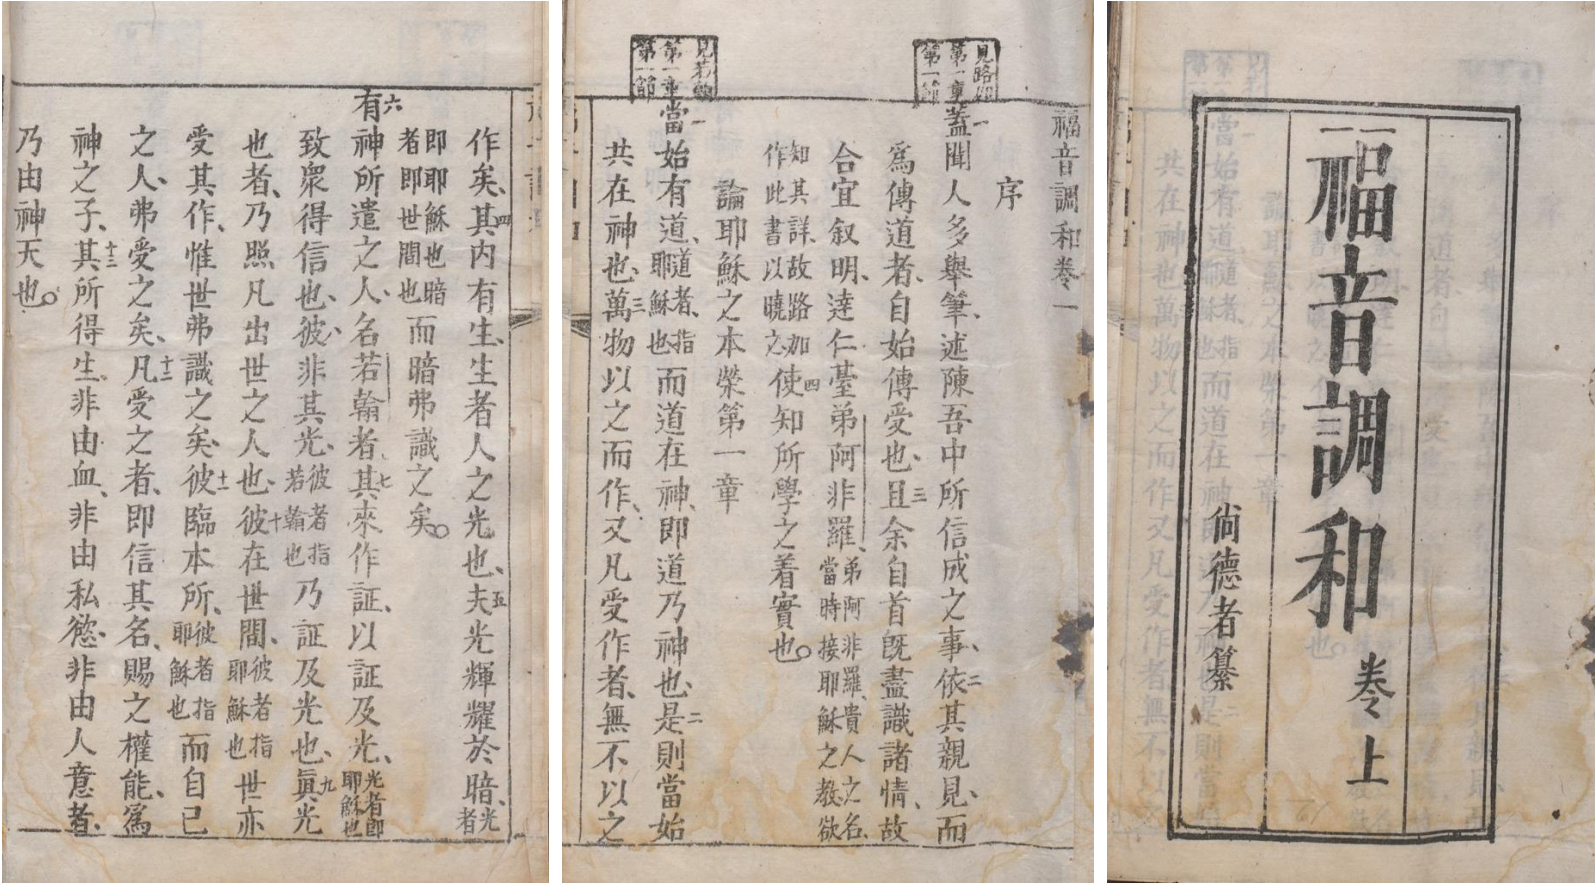 福音調和 卷上
尚德者纂
福音調和卷一
序
見路加第一章第一節
一蓋聞人多舉筆、述陳吾中所信成之事、二依其親見、而
為傳道者、自始傳受也、三且余自首既盡識諸情、故
合宜叙明、達仁臺弟阿非羅、弟阿非羅、貴人之名、當時接耶穌之教、欲
知其詳、故路加作此書以曉之四使知所學之着實也。
論耶穌之本榮第一章
見若翰第一章第一節
一當始有道、道者、指耶穌也而道在神、即道乃神也、二是則當始
共在神也、三萬物以之而作、又凡受作者、無不以之
作矣、四其內有生、生者人之光也、五夫光輝耀於暗、光者
即耶穌也暗者即世間也而暗弗識之矣。
六有神所遣之人、名若翰者、七其來作証、以証及光、光者即耶穌也
致衆得信也、八彼非其光、彼者指若翰也乃証及光也、九眞光
也者、乃照凡出世之人也、十彼在世間、彼者指耶穌也世亦
受其作、惟世弗識之矣、十一彼臨本所、彼者指耶穌也而自己
之人、弗受之矣、十二凡受之者、即信其名、賜之權能、為
神之子、十三其所得生、非由血、非由私慾、非由人意者、
乃由神天也。